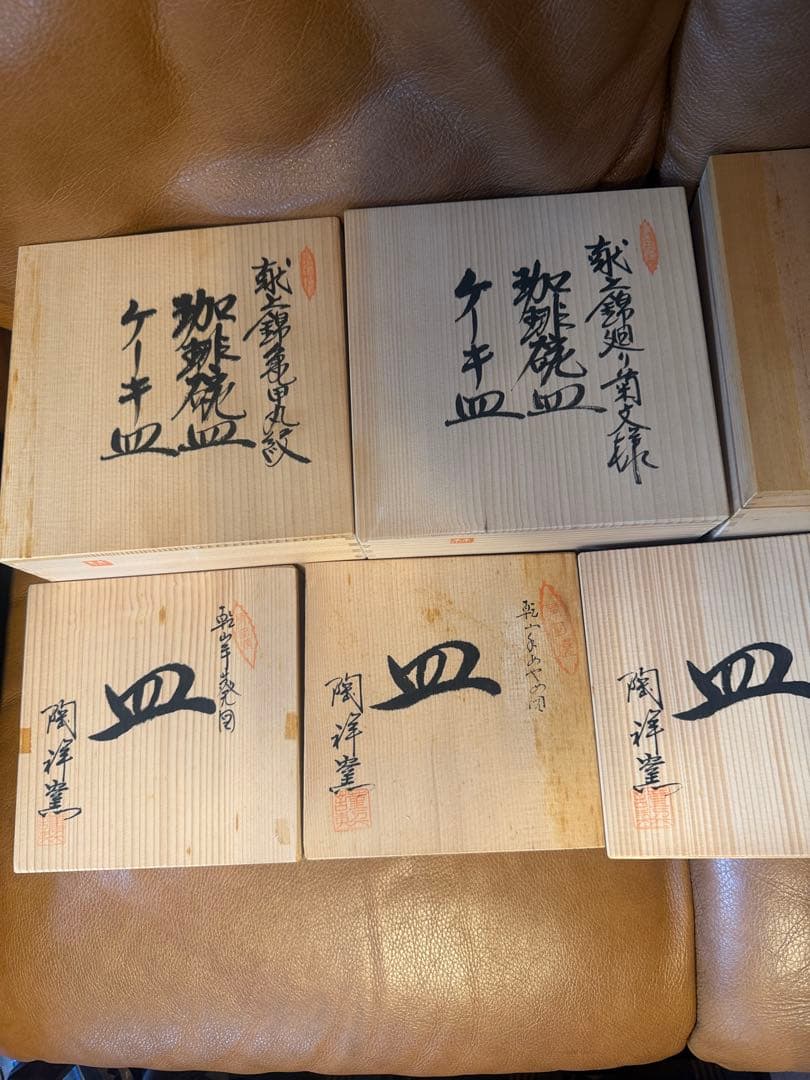 献上錦亀甲丸紋
珈琲碗皿
ケーキ皿
献上錦廻り菊文様
珈琲碗皿
ケーキ皿
皿
陶祥窯
乾山手あやめ図
皿
陶祥窯
皿
陶祥窯